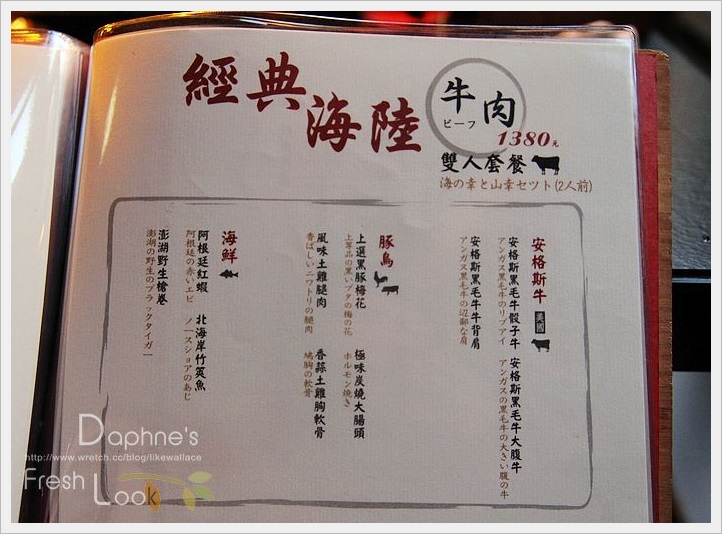 經典
海陸
牛肉
ビーフ
1380元
雙人套餐
海の幸と山幸セツト(2人前)
安格斯牛 美國
安格斯黑毛牛骰子牛 安格斯黑毛牛大腹牛
アンガス黒毛牛のリブアイ アンガスの黒毛牛の大きい腹の牛
安格斯黑毛牛牛背肩
アンガス黒毛牛の辺鄙な肩
豚鳥
上選黑豚梅花 極味炭燒大腸頭
上等品の黒いブタの梅の花 ホルモン焼き
風味土雞腿肉 香蒜土雞胸軟骨
香ばしいニワトリの腿肉 鳩胸の軟骨
海鮮
阿根廷紅蝦 北海岸竹筴魚
阿根廷の赤いエビ ノースショアのあじ
澎湖野生槍卷
澎湖の野生のブラックタイガー
Daphne's
http://www.wretch.cc/blog/likewallace
Fresh Look